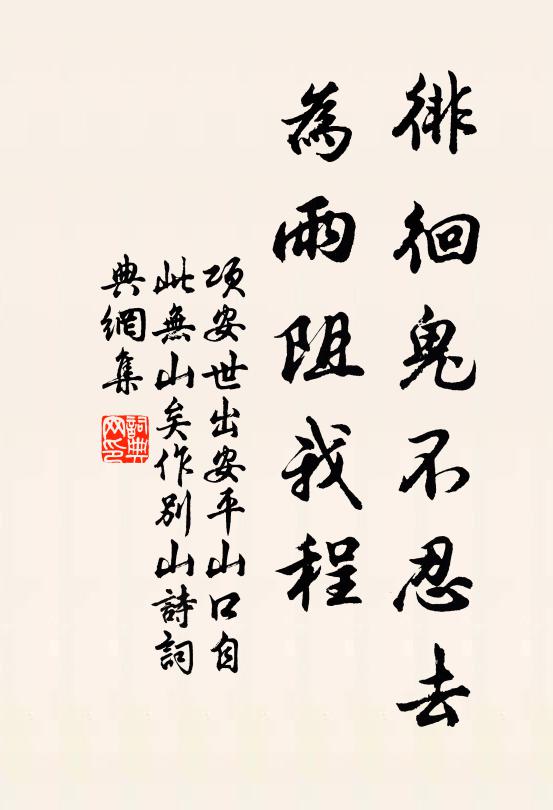 徘徊鬼不忍去
為雨阻我程
項安世出安平山口自
此無山矣作別山詩詞
典網集
詞典
网印